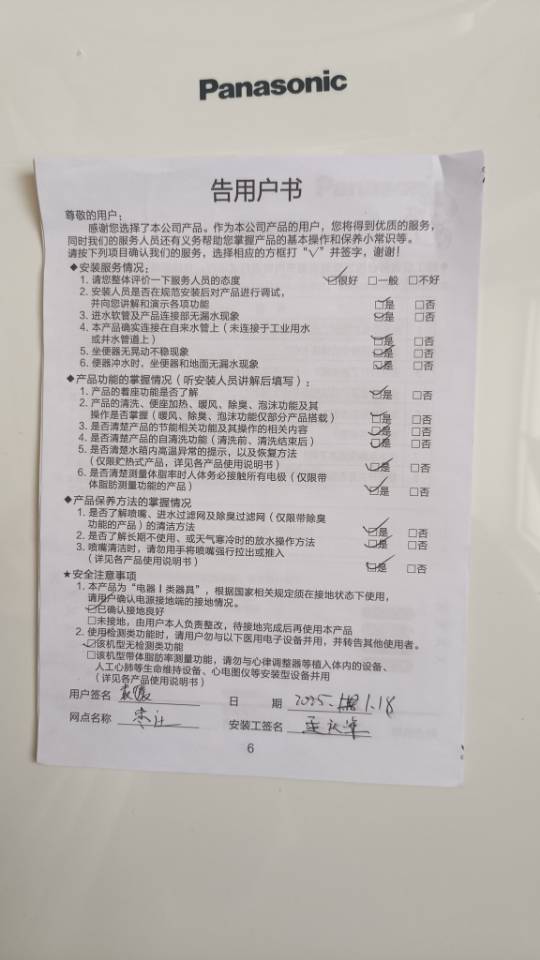 Panasonic
告用户书
尊敬的用户：
感谢您选择了本公司产品。作为本公司产品的用户，您将得到优质的服务，
同时我们的服务人员还有义务帮助您掌握产品的基本操作和保养小常识等。
请按下列项目确认我们的服务，选择相应的方框打“√”并签字，谢谢！
◆安装服务情况：
1. 请您整体评价一下服务人员的态度 ☑很好 □一般 □不好
2. 安装人员是否在规范安装后对产品进行调试，
并向您讲解和演示各项功能 ☑是 □否
3. 进水软管及产品连接部无漏水现象 ☑是 □否
4. 本产品确实连接在自来水管上（未连接于工业用水
或井水管道上） ☑是 □否
5. 坐便器无晃动不稳现象 ☑是 □否
6. 便器冲水时，坐便器和地面无漏水现象 ☑是 □否
◆产品功能的掌握情况（听安装人员讲解后填写）：
1. 产品的着座功能是否了解 ☑是 □否
2. 产品的清洗、便座加热、暖风、除臭、泡沫功能及其
操作是否掌握（暖风、除臭、泡沫功能仅部分产品搭载） ☑是 □否
3. 是否清楚产品的节能相关功能及其操作的相关内容 ☑是 □否
4. 是否清楚产品的自清洗功能（清洗前、清洗结束后） ☑是 □否
5. 是否清楚水箱内高温异常的提示，以及恢复方法
（仅限贮热式产品，详见各产品使用说明书） ☑是 □否
6. 是否清楚测量体脂率时人体务必接触所有电极（仅限带
体脂肪测量功能的产品） ☑是 □否
◆产品保养方法的掌握情况
1. 是否了解喷嘴、进水过滤网及除臭过滤网（仅限带除臭
功能的产品）的清洁方法 ☑是 □否
2. 是否了解长期不使用、或天气寒冷时的放水操作方法 ☑是 □否
3. 喷嘴清洁时，请勿用手将喷嘴强行拉出或推入
（详见各产品使用说明书） ☑是 □否
★安全注意事项
1. 本产品为“电器Ⅰ类器具”，根据国家相关规定须在接地状态下使用，
请用户确认电源接地端的接地情况。
☑已确认接地良好
□未接地，由用户本人负责整改，待接地完成后再使用本产品
2. 使用检测类功能时，请用户勿与以下医用电子设备并用，并转告其他使用者。
☑该机型无检测类功能
□该机型带体脂肪率测量功能，请勿与心律调整器等植入体内的设备、
人工心肺等生命维持设备、心电图仪等安装型设备并用
（详见各产品使用说明书）
用户签名 日 期 2025. 1.18
网点名称 安装工签名
6